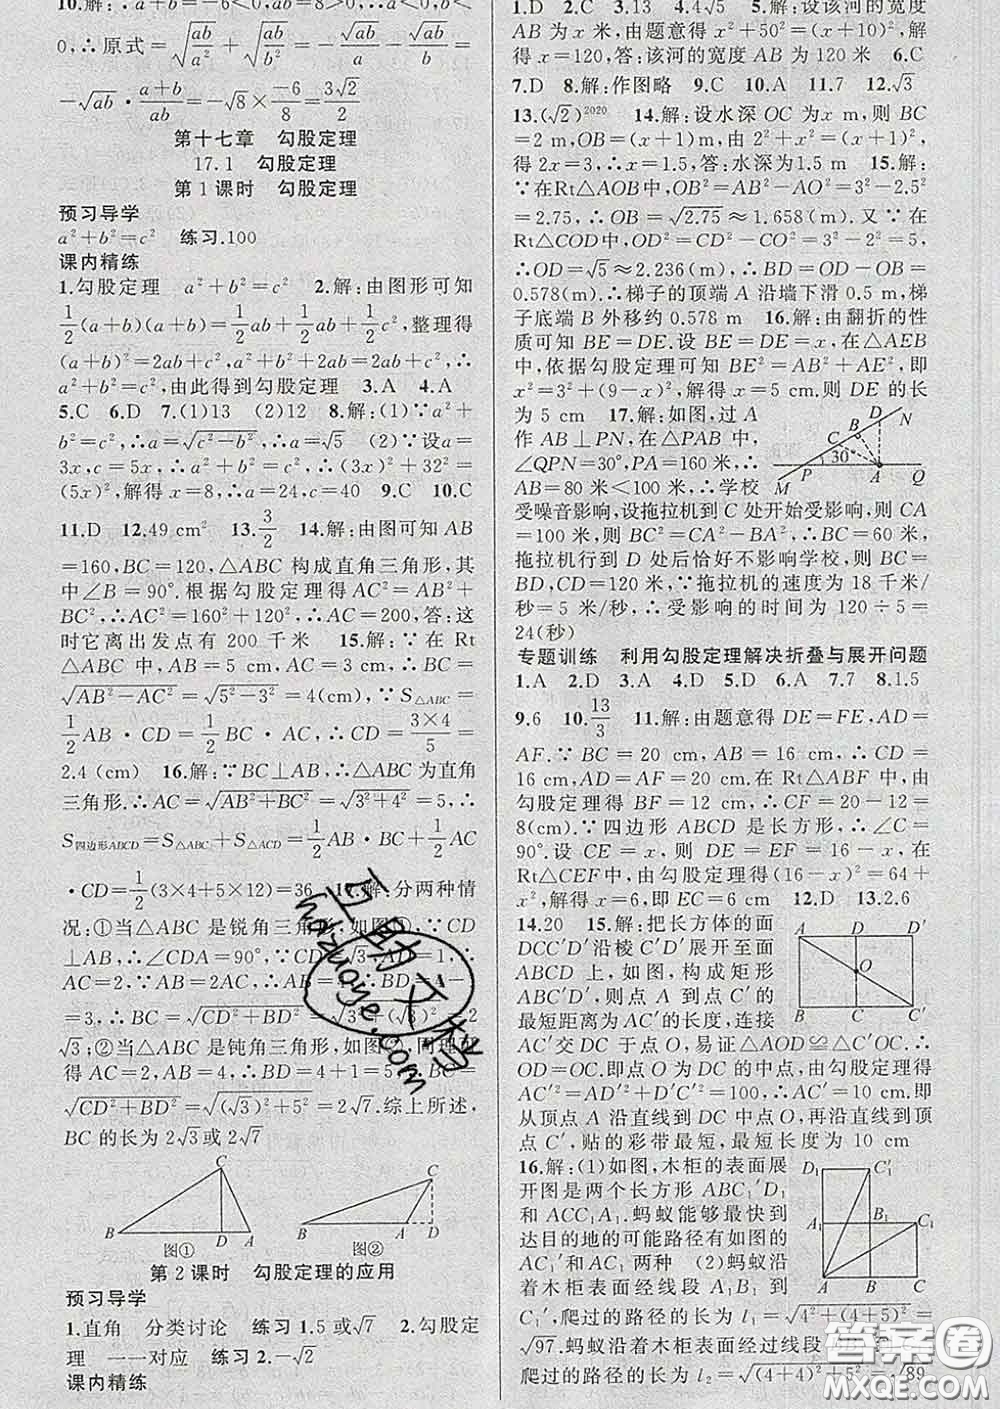 10.解:∵a+b=−6<0,ab=8>0,∴a<0,b<
0,∴原式=√(ab/a²)+√(ab/b²)=−√ab/a−√ab/b=
−√ab·(a+b)/ab=−√8×(−6)/8=3√2/2
第十七章 勾股定理
17.1 勾股定理
第1课时 勾股定理
预习导学
a²+b²=c² 练习.100
课内精练
1.勾股定理 a²+b²=c² 2.解:由图形可知
1/2(a+b)(a+b)=1/2ab+1/2ab+1/2c²,整理得
(a+b)²=2ab+c²,a²+b²+2ab=2ab+c²,∴
a²+b²=c²,由此得到勾股定理 3.A 4.A
5.C 6.D 7.(1)13 (2)12 8.解:(1)∵a²+
b²=c²,∴a=√(c²−b²),∴a=√5 (2)∵设a=
3x,c=5x,∴(3x)²+32²=
(5x)²,解得x=8,∴a=24,c=40 9.C 10.C
11.D 12.49 cm² 13.3/2 14.解:由图可知AB
=160,BC=120,△ABC构成直角三角形,其
中∠B=90°.根据勾股定理得AC²=AB²+
BC²,∴AC²=160²+120²,∴AC=200,答:这
时它离出发点有200千米 15.解:∵在Rt
△ABC中,AB=5,AC=3,∴BC=
√(AB²−AC²)=√(5²−3²)=4(cm),∵S△ABC=
1/2AB·CD=1/2BC·AC,∴CD=(3×4)/5=
2.4(cm) 16.解:∵BC⊥AB,∴△ABC为直角
三角形.∴AC=√(AB²+BC²)=√(3²+4²)=5,∴
S四边形ABCD=S△ABC+S△ACD=1/2AB·BC+1/2AC
·CD=1/2(3×4+5×12)=36 17.解:分两种情
况:①当△ABC是锐角三角形,如图①,∵CD
⊥AB,∴∠CDA=90°,∵CD=√3,AD=1,∴
AC=2,∵AB=2AC,∴AB=4,∴BD=4−1
=3,∴BC=√(CD²+BD²)=√(3²+(√3)²)=2
√3;②当△ABC是钝角三角形,如图②,同理可
得AC=2,AB=4,∴BD=4+1=5,∴BC=
√(CD²+BD²)=√((√3)²+5²)=2√7.综上所述,
BC的长为2√3或2√7
C
B D A
图①
C
B A D
图②
第2课时 勾股定理的应用
预习导学
1.直角 分类讨论 练习1.5或√7 2.勾股定
理 一一对应 练习2.−√2
课内精练
1.D 2.C 3.13 4.4√5 5.解:设该河的宽度
AB为x米,由题意得x²+50²=(x+10)²,解得
x=120,答:该河的宽度AB为120米 6.C
7.D 8.解:作图略 9.C 10.A 11.7 12.√3
13.(√2)²⁰²⁰ 14.解:设水深OC为x m,则BC
=2 m,OB=(x+1)m,由题意得2²+x²=(x+1)²,
得2x=3,∴x=1.5,答:水深为1.5 m 15.解:
∵在Rt△AOB中,OB²=AB²−AO²=3²−2.5²
=2.75,∴OB=√2.75≈1.658(m).又∵在
Rt△COD中,OD²=CD²−CO²=3²−2²=5,
∴OD=√5≈2.236(m),∴BD=OD−OB=
0.578(m),∴梯子的顶端A沿墙下滑0.5 m,梯
子底端B外移约0.578 m 16.解:由翻折的性
质可知BE=DE.设BE=DE=x,在△AEB
中,依据勾股定理可知BE²=AB²+AE²,即
x²=3²+(9−x)²,解得x=5 cm.则DE的长
为5 cm 17.解:如图,过A
作AB⊥PN,在△PAB中,
∠QPN=30°,PA=160米,∴
AB=80米<100米,∴学校
D N B C 30° M P A Q
受噪音影响,设拖拉机到C处开始受影响,则CA
=100米,则BC²=CA²−BA²,∴BC=60米,
拖拉机行到D处后恰好不影响学校,则BC=
BD,CD=120米,∵拖拉机的速度为18千米/
时=5米/秒,∴受影响的时间为120÷5=
24(秒)
专题训练 利用勾股定理解决折叠与展开问题
1.A 2.D 3.A 4.D 5.D 6.A 7.7 8.1.5
9.6 10.13/3 11.解:由题意得DE=FE,AD=
AF.∵BC=20 cm,AB=16 cm,∴CD=
16 cm,AD=AF=20 cm.在Rt△ABF中,由
勾股定理得BF=12 cm,∴CF=20−12=
8(cm).∵四边形ABCD是长方形,∴∠C=
90°.设CE=x,则DE=EF=16−x,在
Rt△CEF中,由勾股定理得(16−x)²=64+
x²,解得x=6,即EC=6 cm 12.D 13.2.6
14.20 15.解:把长方体的面
DCC′D′沿棱C′D′展开至面
ABCD上,如图,构成矩形
ABC′D′,则点A到点C′的
最短距离为AC′的长度,连接
A D D′ O B C C′
AC′交DC于点O,易证△AOD≌△C′OC.∴
OD=OC.即点O为DC的中点,由勾股定理得
AC′²=AD′²+D′C′²=100,∴AC′=10 cm.即
从顶点A沿直线到DC中点O,再沿直线到顶点
C′,贴的彩带最短,最短长度为10 cm
16.解:(1)如图,木柜的表面展
开图是两个长方形ABC₁′D₁
和ACC₁A₁.蚂蚁能够最快到
达目的地的可能路径有如图的
AC₁′和AC₁两种 (2)蚂蚁沿
着木柜表面经线段A₁B₁到
D₁ C₁′ A₁ B₁ C₁ A B C
C₁′,爬过的路径的长为l₁=√(4²+(4+5)²)=
√97.蚂蚁沿着木柜表面经过线段
爬过的路径的长为l₂=√((4+4)²+5²)=√89
互助文档
huzuoye.com
答案圈
MXQE.COM